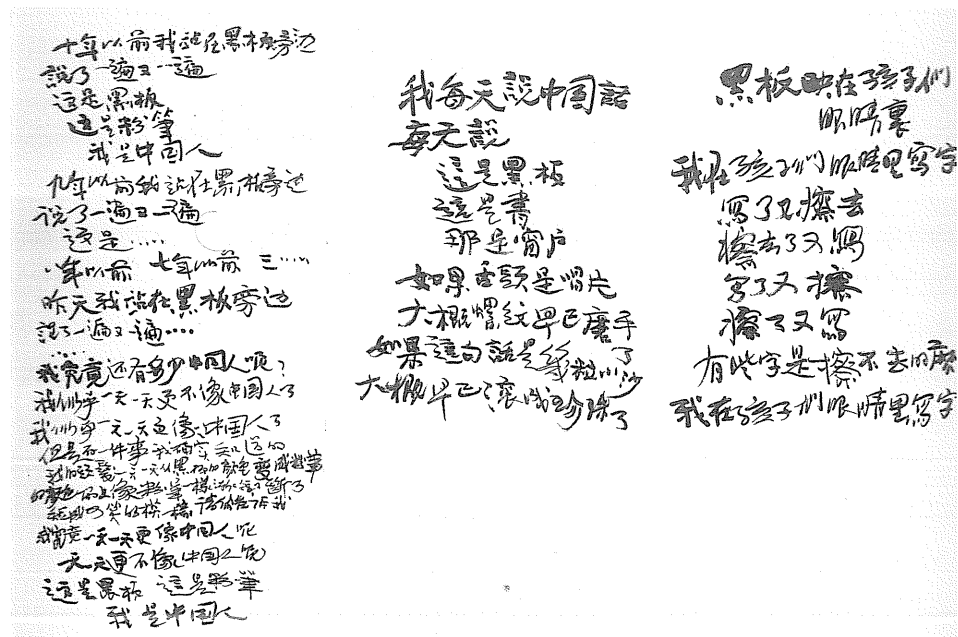 十年以前我站在黑板旁边
說了一遍又一遍
这是黑板
這是粉筆
我是中国人
九年以前我站在黑板旁边
说了一遍又一遍
這是....
八年以前 七年以前 三....
昨天我站在黑板旁边
說了一遍又一遍....
......
我究竟还有多少中国人呢?
我似乎一天一天更不像中国人了
我似乎一天一天更像中国人了
但是有一件事我确实知道的
我的頭髮一天一天从黑板的顏色變成粉筆
的顏色 而且像粉筆一樣漸短漸断了
短成可笑的模樣 请你告诉我
我究竟一天一天更像中国人呢
一天一天更不像中国人呢
這是黑板 這是粉筆
我是中国人
我每天說中国話
每天說
這是黑板
這是書
那是窗户
如果舌頭是唱片
大概螺紋早已磨平了
如果這句話是幾粒小沙
大概早已滾成珍珠了
黑板映在孩子們
眼睛裏
我在孩子们眼睛里寫字
寫了又擦去
擦去了又寫
寫了又擦
擦了又寫
有些字是擦不去的麽
我在孩子们眼睛里寫字